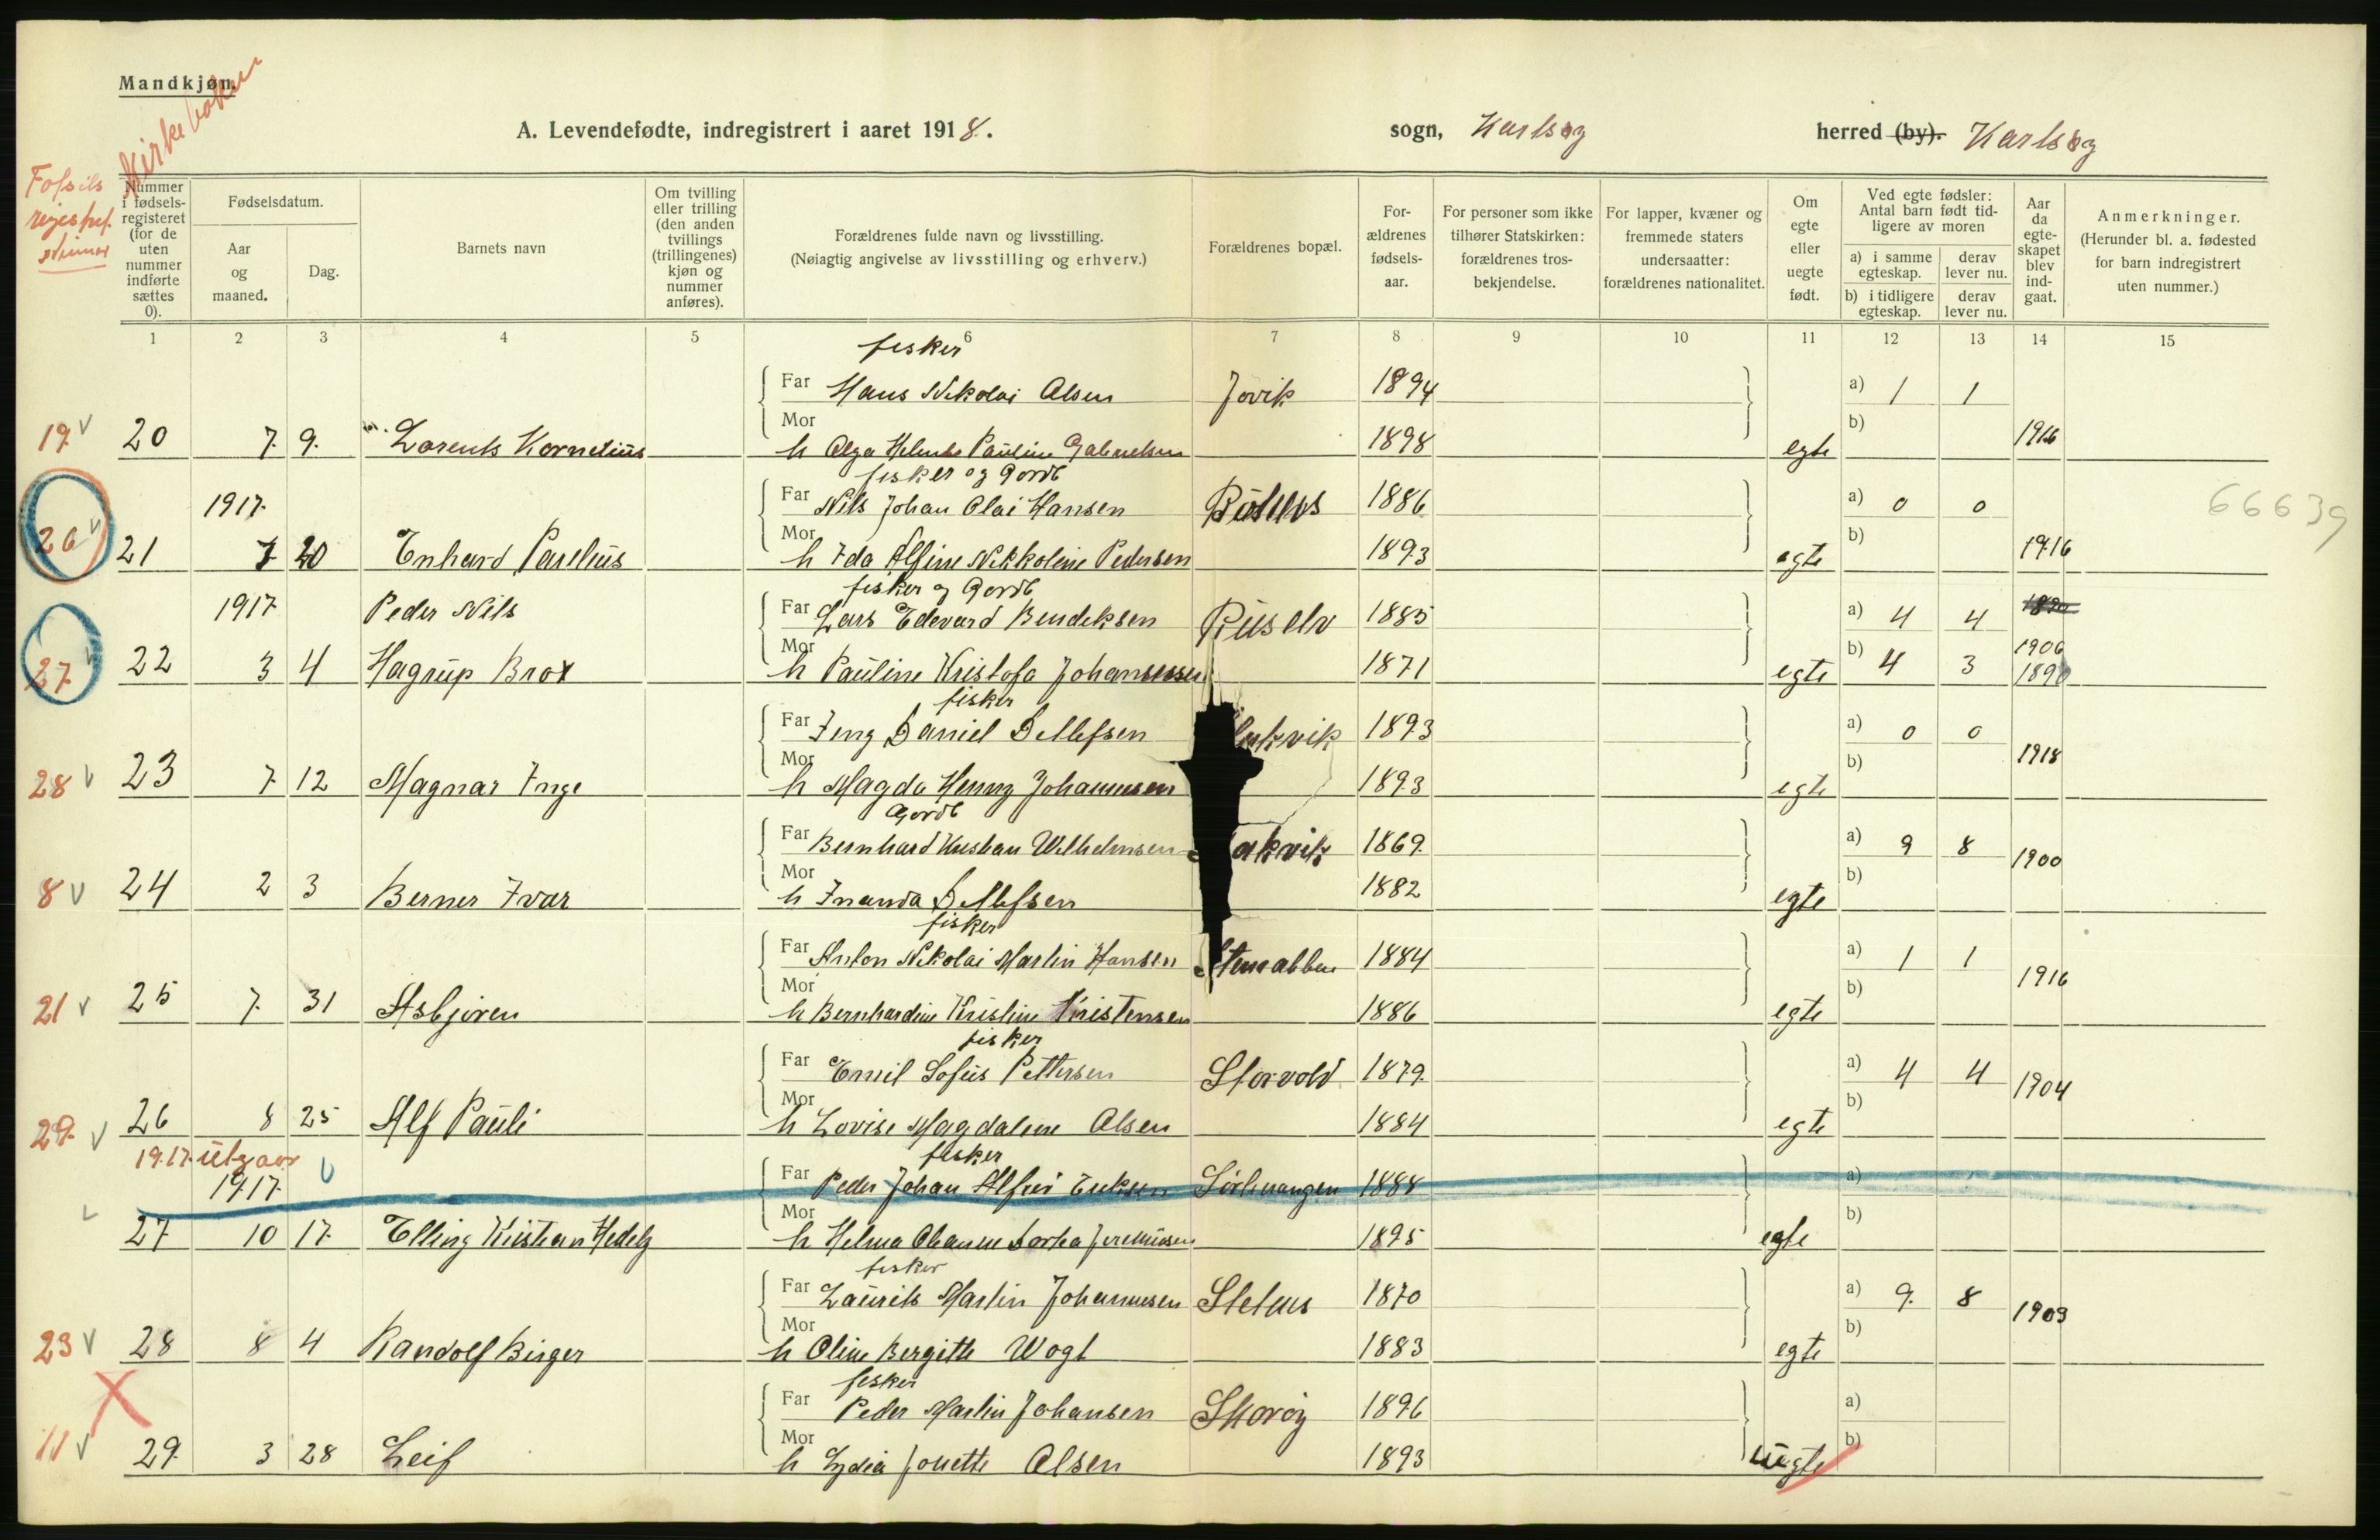 Mandkjøn.
Kirkeboken
A. Levendefødte, indregistrert i aaret 1918.
sogn, Karlsøy
herred (by). Karlsøy
Nummer i fødsels-registeret (for de uten nummer indførte sættes 0).
Fødselsdatum.
Aar og maaned.
Dag.
Barnets navn
Om tvilling eller trilling (den anden tvillings (trillingenes) kjøn og nummer anføres).
Forældrenes fulde navn og livsstilling.
(Nøiagtig angivelse av livsstilling og erhverv.)
Forældrenes bopæl.
For-ældrenes fødsels-aar.
For personer som ikke tilhører Statskirken: forældrenes tros-bekjendelse.
For lapper, kvæner og fremmede staters undersaatter: forældrenes nationalitet.
Om egte eller uegte født.
Ved egte fødsler: Antal barn født tid-ligere av moren
a) i samme egteskap.
derav lever nu.
b) i tidligere egteskap.
derav lever nu.
Aar da egte-skapet blev ind-gaat.
Anmerkninger.
(Herunder bl. a. fødested for barn indregistrert uten nummer.)
1 2 3 4 5 6 7 8 9 10 11 12 13 14 15
fisker
Far Hans Nikolai Olsen Jøvik 1894 a) 1 1
19 v 20 7 9 Lorents Kornelius
Mor h Olga Pauline 1898 egte b) 1916
fisker og Gordb
1917 Far Nils Johan Olai Hansen 1886 a) 0 0
66639
26 v 21 7 20 Enhard Parelius
Mor h Ida Alfine Nikkoline Pedersen 1893 egte b) 1916
fisker og Gordb
1917 Peder Nils Far Lars Edevard Bendeksen Ruselv 1885 a) 4 4
27 v 22 3 4 Hagrup Brox
Mor h Pauline Kristofa Johannessen 1871 egte b) 4 3 1906 1890
fisker
Far Jeng Daniel Detlefsen 1893 a) 0 0
28 v 23 7 12 Magnar Inge
Mor h Magda Henny Johannesen 1893 egte b) 1918
Gordb
Far Bernhard Kristian Wilhelmsen 1869 a) 9 8 1900
8 v 24 2 3 Berner Ivar
Mor h Inanda Detlefsen 1882 egte b)
fisker
Far Anton Nikolai Martin Hansen 1884 a) 1 1 1916
21 v 25 7 31 Asbjøren
Mor h Bernhardine Kristine Kristensen 1886 egte b)
fisker
Far Emil Sofus Pettersen Storvold 1879 a) 4 4 1904
29 v 26 8 25 Alf Pauli
Mor h Lovise Magdalene Olsen 1884 egte b)
1917 utgaar
fisker
1917 Far Peder Johan Alfur Eriksen Sørlenangen 1888 a)
27 10 17 Elling Kristian Hedely
Mor h Helma Dortea 1895 egte b)
fisker
Far Laurits Martin Johannesen 1870 a) 9 8 1903
23 v 28 8 4 Randolf Birger
Mor h Oline Bergitte Wogt 1883 egte b)
fisker
Far Peder Martin Johansen Skorøy 1896 a)
11 v 29 3 28 Leif
Mor h Lydia Jonette Olsen 1893 uegte b)